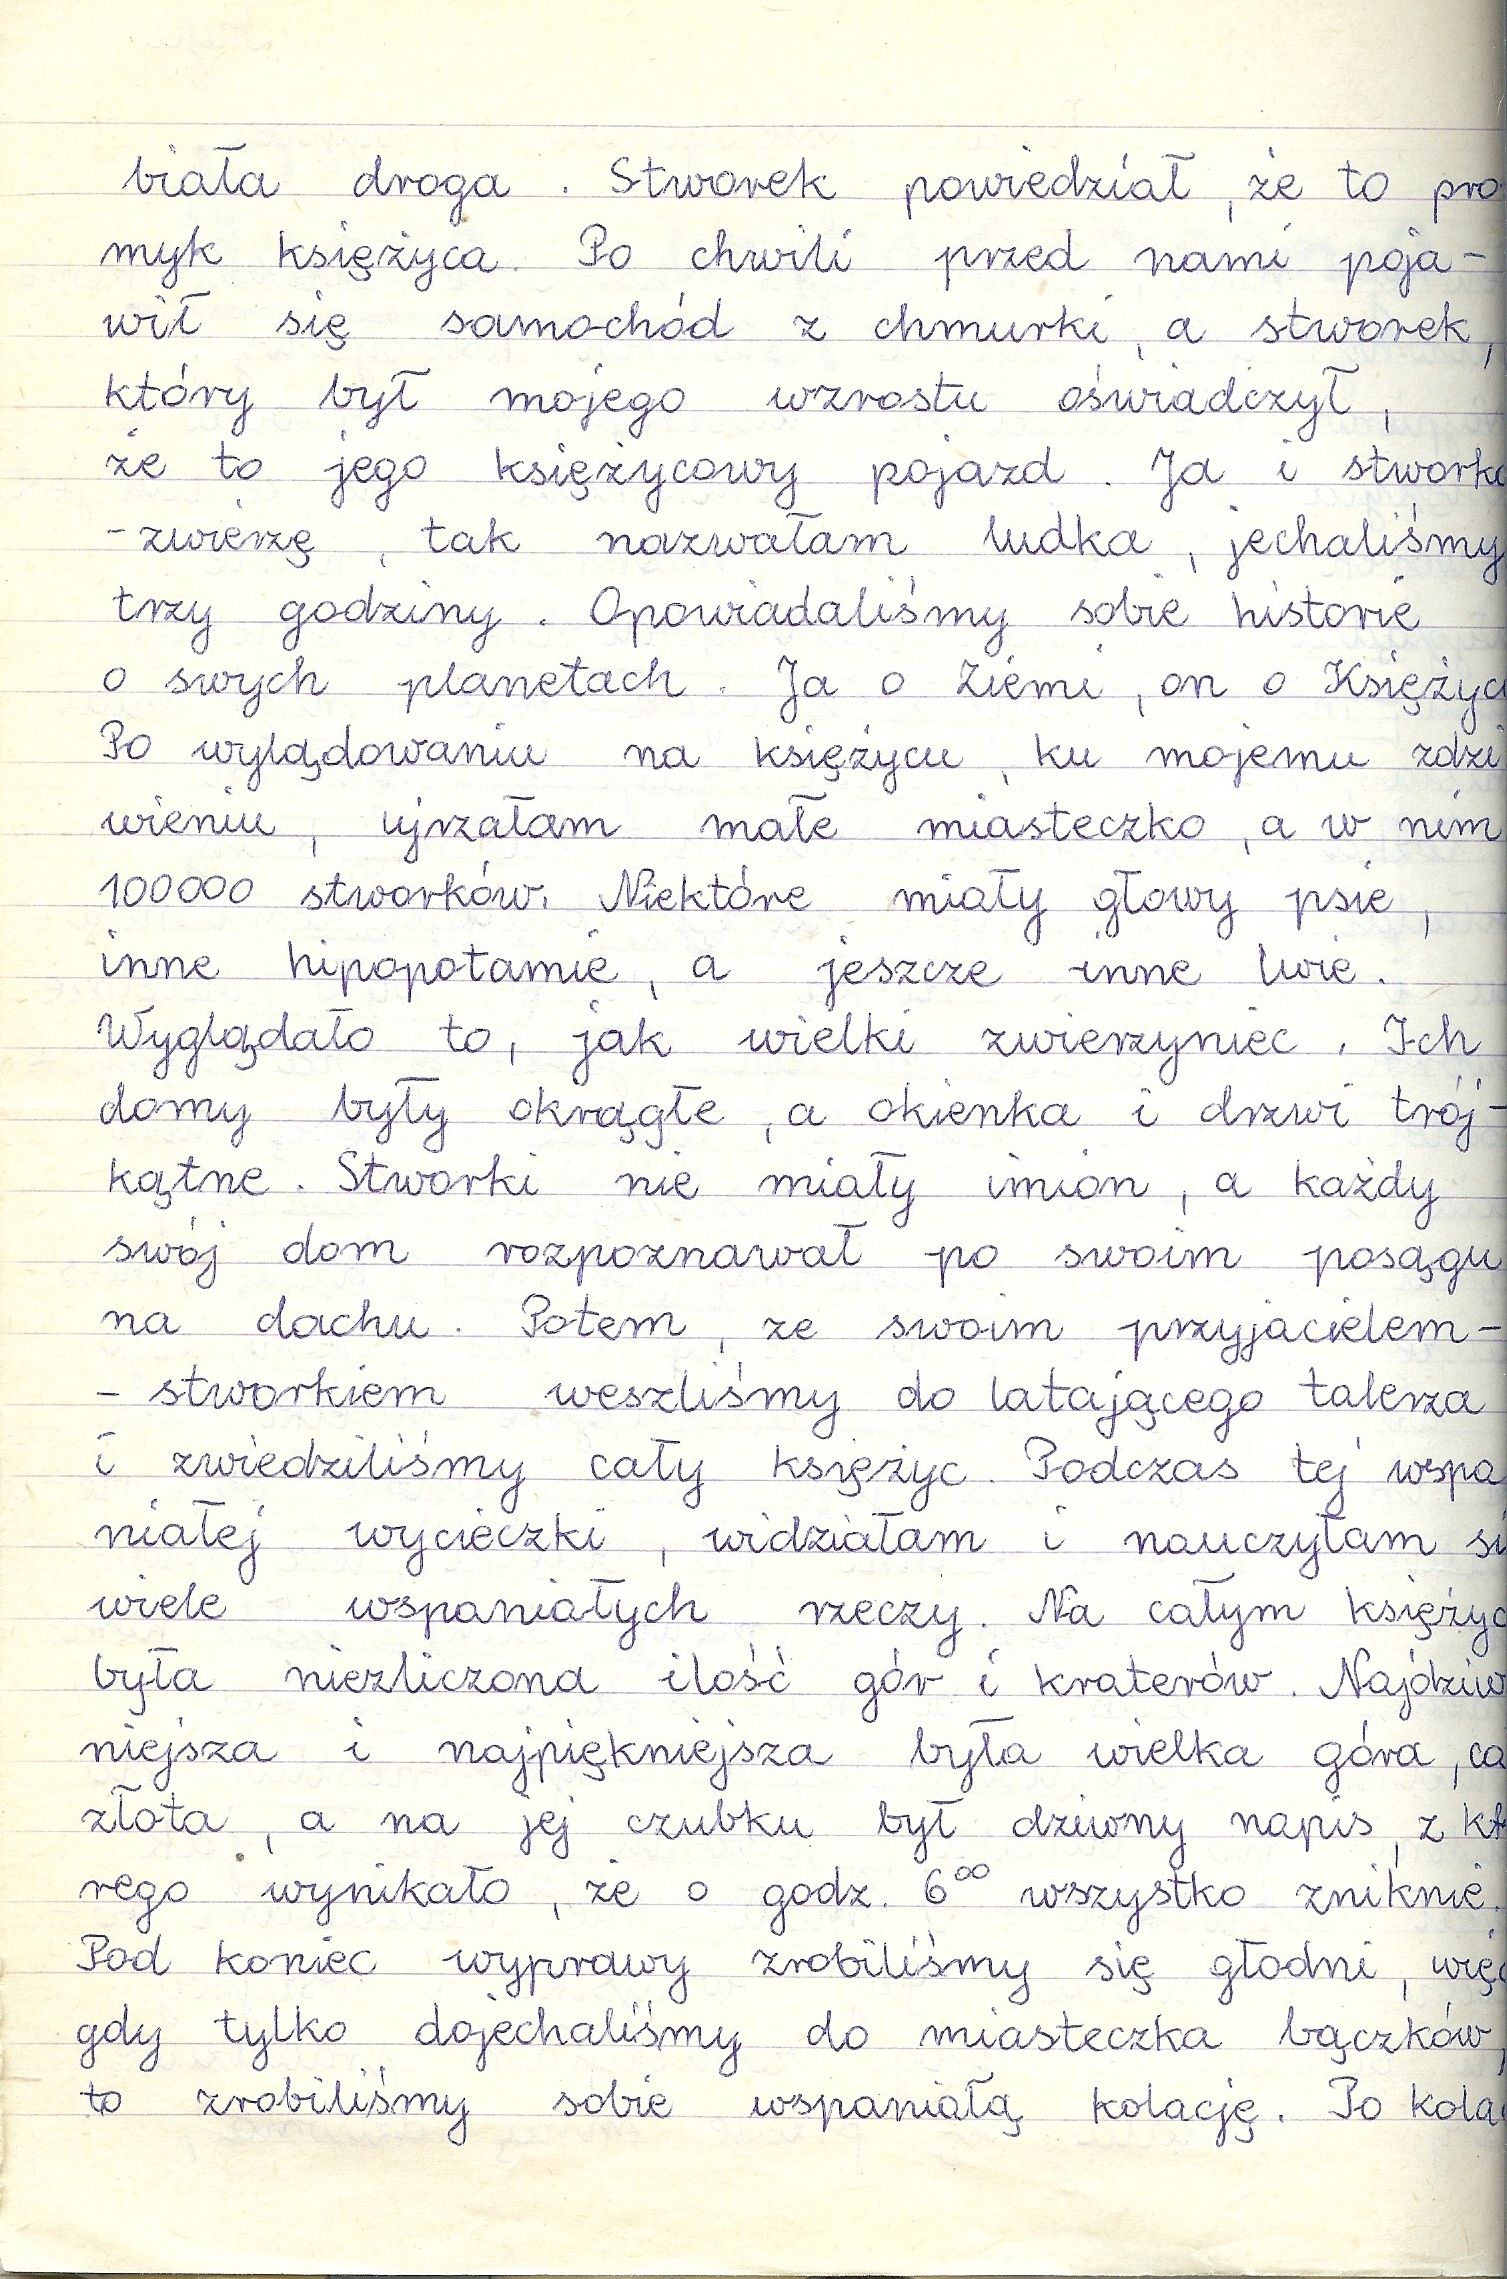 biała droga. Stworek powiedział, że to pro
myk księżyca. Po chwili przed nami poja-
wił się samochód z chmurki, a stworek,
który był mojego wzrostu oświadczył,
że to jego księżycowy pojazd. Ja i stworko
-zwierzę, tak nazwałam ludka, jechaliśmy
trzy godziny. Opowiadaliśmy sobie historie
o swych planetach. Ja o Ziemi, on o Księżyc
Po wylądowaniu na księżycu, ku mojemu zdzi
wieniu, ujrzałam małe miasteczko, a w nim
100000 stworków. Niektóre miały głowy psie,
inne hipopotamie, a jeszcze inne lwie.
Wyglądało to, jak wielki zwierzyniec. Ich
domy były okrągłe, a okienka i drzwi trój-
kątne. Stworki nie miały imion, a każdy
swój dom rozpoznawał po swoim posągu
na dachu. Potem, ze swoim przyjacielem-
- stworkiem weszliśmy do latającego talerza
i zwiedziliśmy cały księżyc. Podczas tej wspa
niałej wycieczki, widziałam i nauczyłam si
wiele wspaniałych rzeczy. Na całym księżyc
była niezliczona ilość gór i kraterów. Najdziw
niejsza i najpiękniejsza była wielka góra, ca
złota, a na jej czubku był dziwny napis, z kt
rego wynikało, że o godz. 6⁰⁰ wszystko zniknie.
Pod koniec wyprawy zrobiliśmy się głodni, więc
gdy tylko dojechaliśmy do miasteczka bączków,
to zrobiliśmy sobie wspaniałą kolację. Po kola